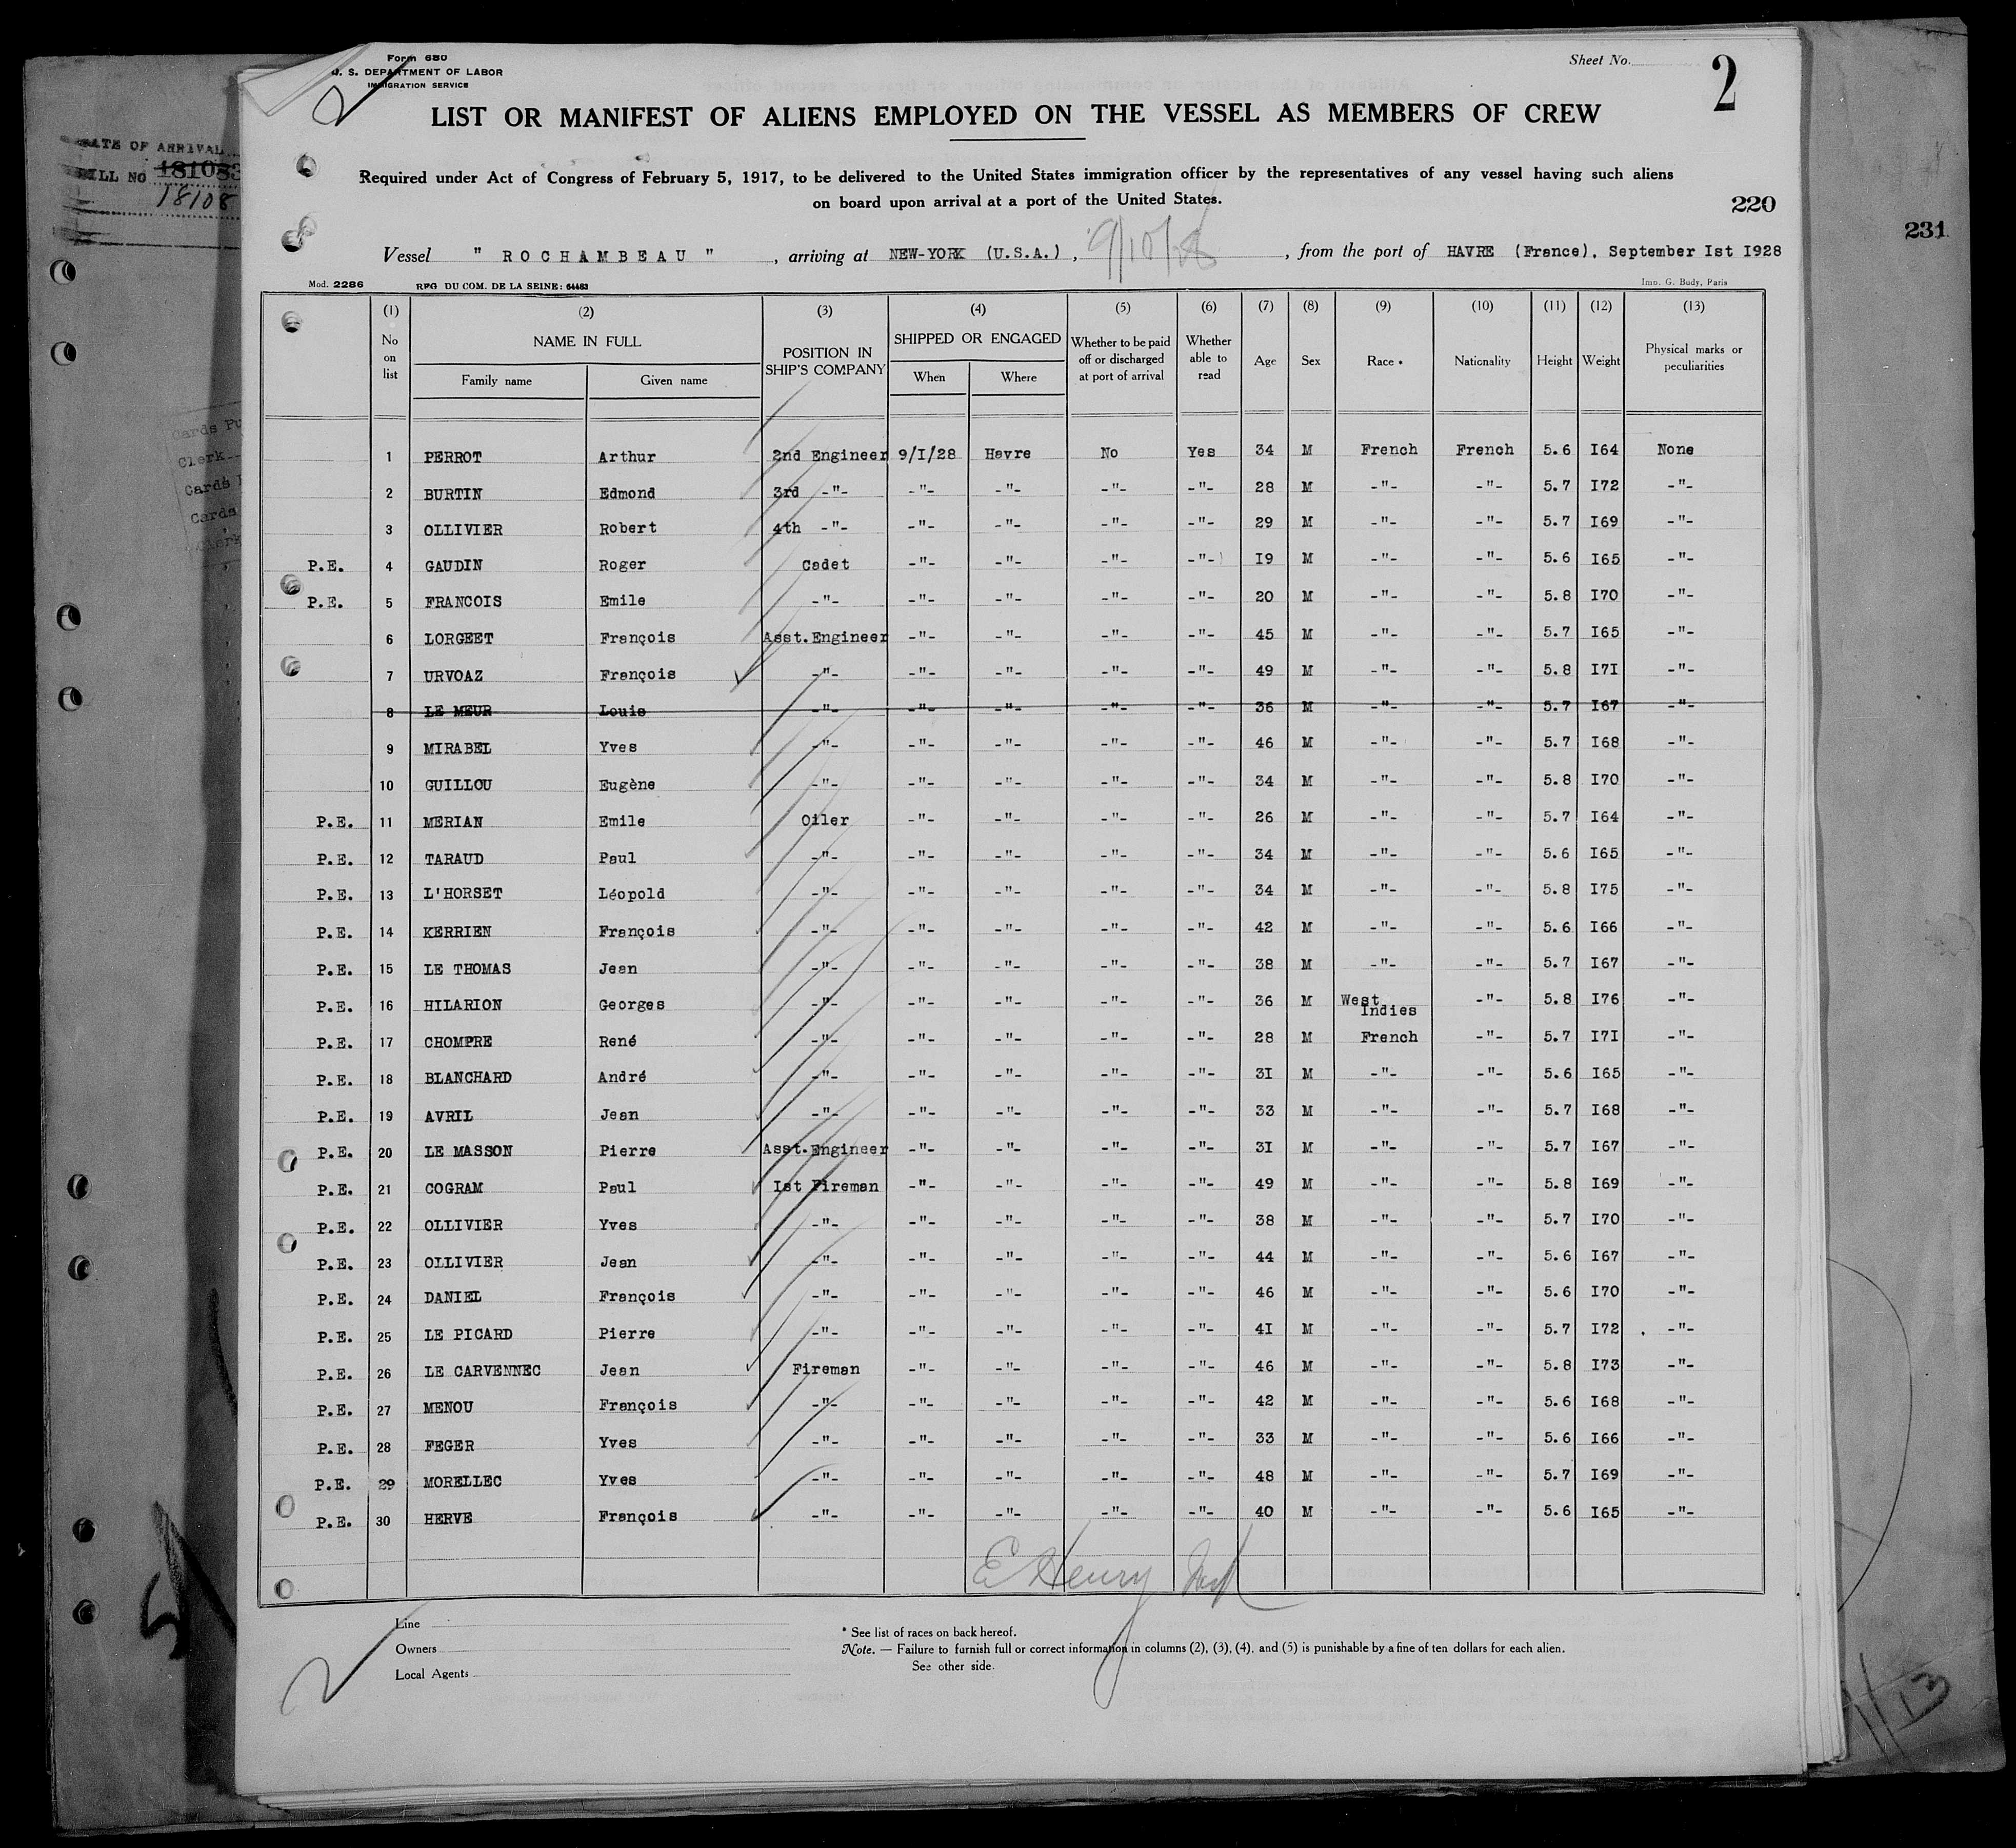 Form 680
U. S. DEPARTMENT OF LABOR
IMMIGRATION SERVICE
Sheet No.
2
LIST OR MANIFEST OF ALIENS EMPLOYED ON THE VESSEL AS MEMBERS OF CREW
Required under Act of Congress of February 5, 1917, to be delivered to the United States immigration officer by the representatives of any vessel having such aliens
on board upon arrival at a port of the United States.
220
231
DATE OF ARRIVAL
BILL NO 181083
18108
Cards Pu
Clerk
Cards
Cards
Clerk
Vessel " ROCHAMBEAU ", arriving at NEW-YORK (U.S.A.), 9/10/28, from the port of HAVRE (France), September Ist I928
Mod. 2286 RPG DU COM. DE LA SEINE: 64483 Imp. G. Budy, Paris
(1) (2) (3) (4) (5) (6) (7) (8) (9) (10) (11) (12) (13)
No on list NAME IN FULL POSITION IN SHIP'S COMPANY SHIPPED OR ENGAGED Whether to be paid off or discharged at port of arrival Whether able to read Age Sex Race * Nationality Height Weight Physical marks or peculiarities
Family name Given name When Where
1 PERROT Arthur 2nd Engineer 9/I/28 Havre No Yes 34 M French French 5.6 I64 None
2 BURTIN Edmond 3rd -"- -"- -"- -"- -"- 28 M -"- -"- 5.7 I72 -"-
3 OLLIVIER Robert 4th -"- -"- -"- -"- -"- 29 M -"- -"- 5.7 I69 -"-
P.E. 4 GAUDIN Roger Cadet -"- -"- -"- -"- I9 M -"- -"- 5.6 I65 -"-
P.E. 5 FRANCOIS Emile -"- -"- -"- -"- -"- 20 M -"- -"- 5.8 I70 -"-
6 LORGEET François Asst.Engineer -"- -"- -"- -"- 45 M -"- -"- 5.7 I65 -"-
7 URVOAZ François -"- -"- -"- -"- -"- 49 M -"- -"- 5.8 I7I -"-
8 LE MEUR Louis -"- -"- -"- -"- -"- 36 M -"- -"- 5.7 I67 -"-
9 MIRABEL Yves -"- -"- -"- -"- -"- 46 M -"- -"- 5.7 I68 -"-
10 GUILLOU Eugène -"- -"- -"- -"- -"- 34 M -"- -"- 5.8 I70 -"-
P.E. 11 MERIAN Emile Oiler -"- -"- -"- -"- 26 M -"- -"- 5.7 I64 -"-
P.E. 12 TARAUD Paul -"- -"- -"- -"- -"- 34 M -"- -"- 5.6 I65 -"-
P.E. 13 L'HORSET Léopold -"- -"- -"- -"- -"- 34 M -"- -"- 5.8 I75 -"-
P.E. 14 KERRIEN François -"- -"- -"- -"- -"- 42 M -"- -"- 5.6 I66 -"-
P.E. 15 LE THOMAS Jean -"- -"- -"- -"- -"- 38 M -"- -"- 5.7 I67 -"-
P.E. 16 HILARION Georges -"- -"- -"- -"- -"- 36 M West Indies -"- 5.8 I76 -"-
P.E. 17 CHOMPRE René -"- -"- -"- -"- -"- 28 M French -"- 5.7 I7I -"-
P.E. 18 BLANCHARD André -"- -"- -"- -"- -"- 3I M -"- -"- 5.6 I65 -"-
P.E. 19 AVRIL Jean -"- -"- -"- -"- -"- 33 M -"- -"- 5.7 I68 -"-
P.E. 20 LE MASSON Pierre Asst.Engineer -"- -"- -"- -"- 3I M -"- -"- 5.7 I67 -"-
P.E. 21 COGRAM Paul Ist Fireman -"- -"- -"- -"- 49 M -"- -"- 5.8 I69 -"-
P.E. 22 OLLIVIER Yves -"- -"- -"- -"- -"- 38 M -"- -"- 5.7 I70 -"-
P.E. 23 OLLIVIER Jean -"- -"- -"- -"- -"- 44 M -"- -"- 5.6 I67 -"-
P.E. 24 DANIEL François -"- -"- -"- -"- -"- 46 M -"- -"- 5.6 I70 -"-
P.E. 25 LE PICARD Pierre -"- -"- -"- -"- -"- 4I M -"- -"- 5.7 I72 -"-
P.E. 26 LE CARVENNEC Jean Fireman -"- -"- -"- -"- 46 M -"- -"- 5.8 I73 -"-
P.E. 27 MENOU François -"- -"- -"- -"- -"- 42 M -"- -"- 5.6 I68 -"-
P.E. 28 FEGER Yves -"- -"- -"- -"- -"- 33 M -"- -"- 5.6 I66 -"-
P.E. 29 MORELLEC Yves -"- -"- -"- -"- -"- 48 M -"- -"- 5.7 I69 -"-
P.E. 30 HERVE François -"- -"- -"- -"- -"- 40 M -"- -"- 5.6 I65 -"-
E Henry
Line
Owners
Local Agents
* See list of races on back hereof.
Note. — Failure to furnish full or correct information in columns (2), (3), (4), and (5) is punishable by a fine of ten dollars for each alien.
See other side.
13